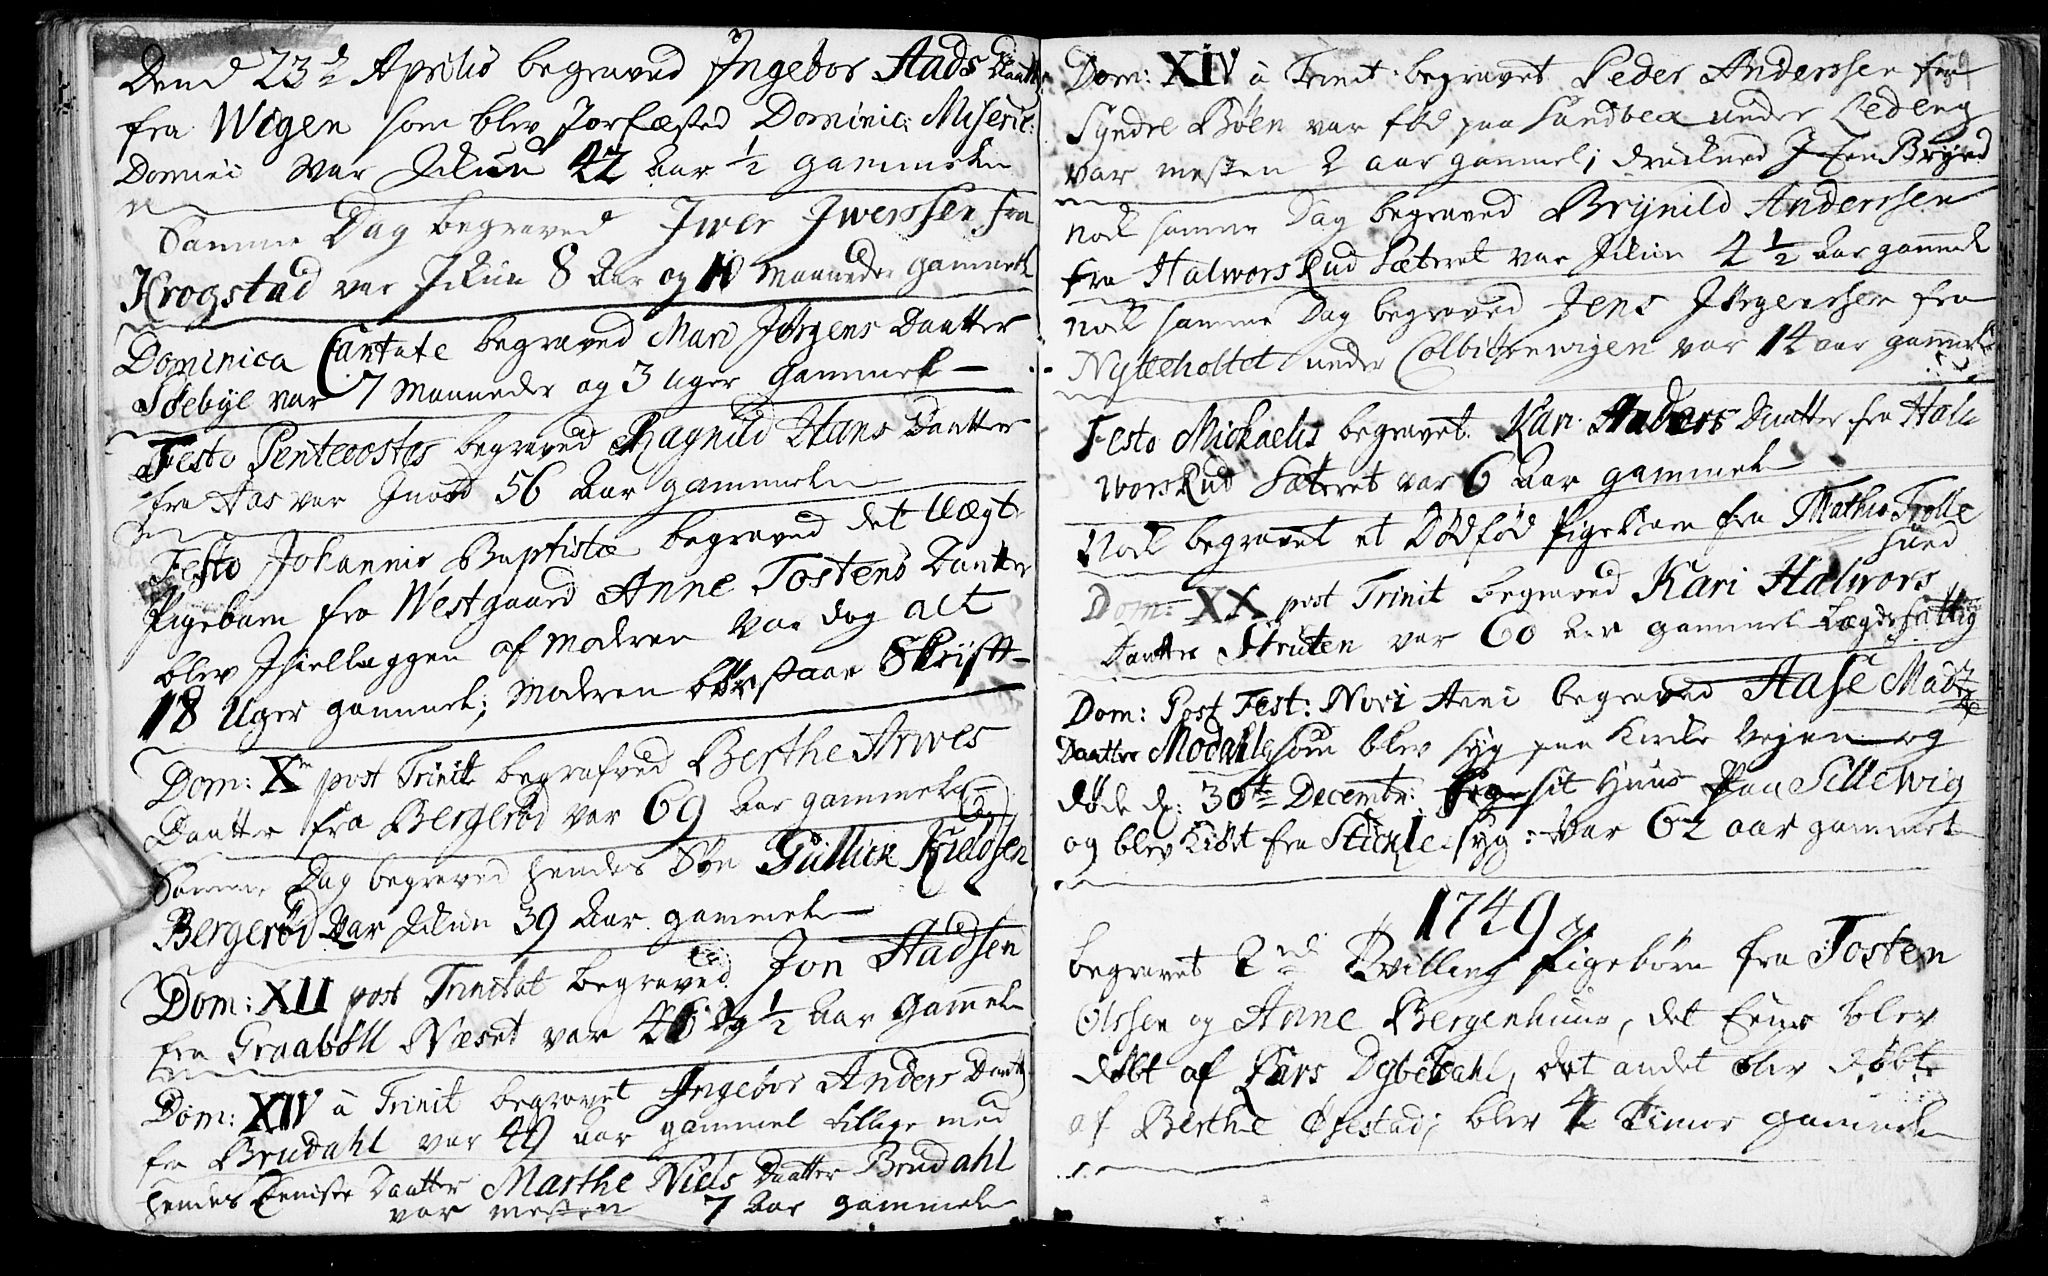 Dend 23de Aprilis begraved Ingebor Stads Daatter
fra Wigen som blev Jorfæsted Dominic: Miseric:
Domini War Ickun 42 Aar ½ gammel
Samme Dag begraved Iwer Iwerssen fra
Krogstad var Ickun 8 Aar og 10 Maaneder gammel
Dominica Cantate begraved Mari Jørgens Daatter
Søebye var 7 Maaneder og 3 uger gammel
Festo Pentecostes begraved Ragnild Hans Daatter
fra Aas var 56 Aar gammel
Festo Johannis Baptistæ begraved det Uægte
Pigebarn fra Westgaard Anne Tostens Daatter
blev Ihiellaggen af Moderen var dog alt
18 Uger gammel; Moderen Skrifft
Dom: X post Trinit begrafved Berthe Arwes
Daatter fra Bergerød var 69 Aar gammel
Samme Dag begraved hendes Søn Gullick Kieldsen
Bergerød Var Ickun 39 Aar gammel
Dom: XII post Trinitat begraved Jon Stadsen
fra Graabøll Næset var 46 og ½ Aar Gammel
Dom: XIV à Trinit begravet Ingebor Anders Daatt
fra Brudahl var 49 Aar gammel tillige med
hendes Eeniste Daatter Marthe Niels Daatter Brudahl
var mesten 7 Aar gammel
Dom: XIV à Trinit: begravet Peder Anderssen fra
Syndre Bøen var fød paa Sandbek under Ledeng
var mesten 2 aar gammel; druckned I Een Brynd
Nock samme Dag begraved Brynild Anderssen
fra Halwors Rud Sæteret var Ickun 4 ½ Aar gammel
Nock samme Dag begraved Jens Jørgenssen fra
Nytteholtet under Colbiørnwigen var 14 aar gammel
Festo Michaelis begravet Kari Anders Daatter fra Hal
wors Rud Sæteret var 6 Aar gammel
Nock begravet et Dødfød Pigebarn fra Mathis Trolle
sund
Dom: XX post Trinit begraved Kari Halwors
Daatter Struten var 60 Aar gammel Lægdsfattig
Dom: Post Fest: Novi Anni begraved Aase Mads
Daatter Modahl som blev syg paa Kircke Vejen og
døde d: 30te Decembr: sit Huus Paa Sillewig
og blev Kiørt fra Stickle syg: Var 62 aar gammel
1749
begravet 2nde Tvilling Pigebørn fra Tosten
Olssen og Anne Bergenhuus, det Eene blev
døbt af Lars Dybedahl, det andet blev døbt
af Berthe Ofestad; blev 4 Timer gammel